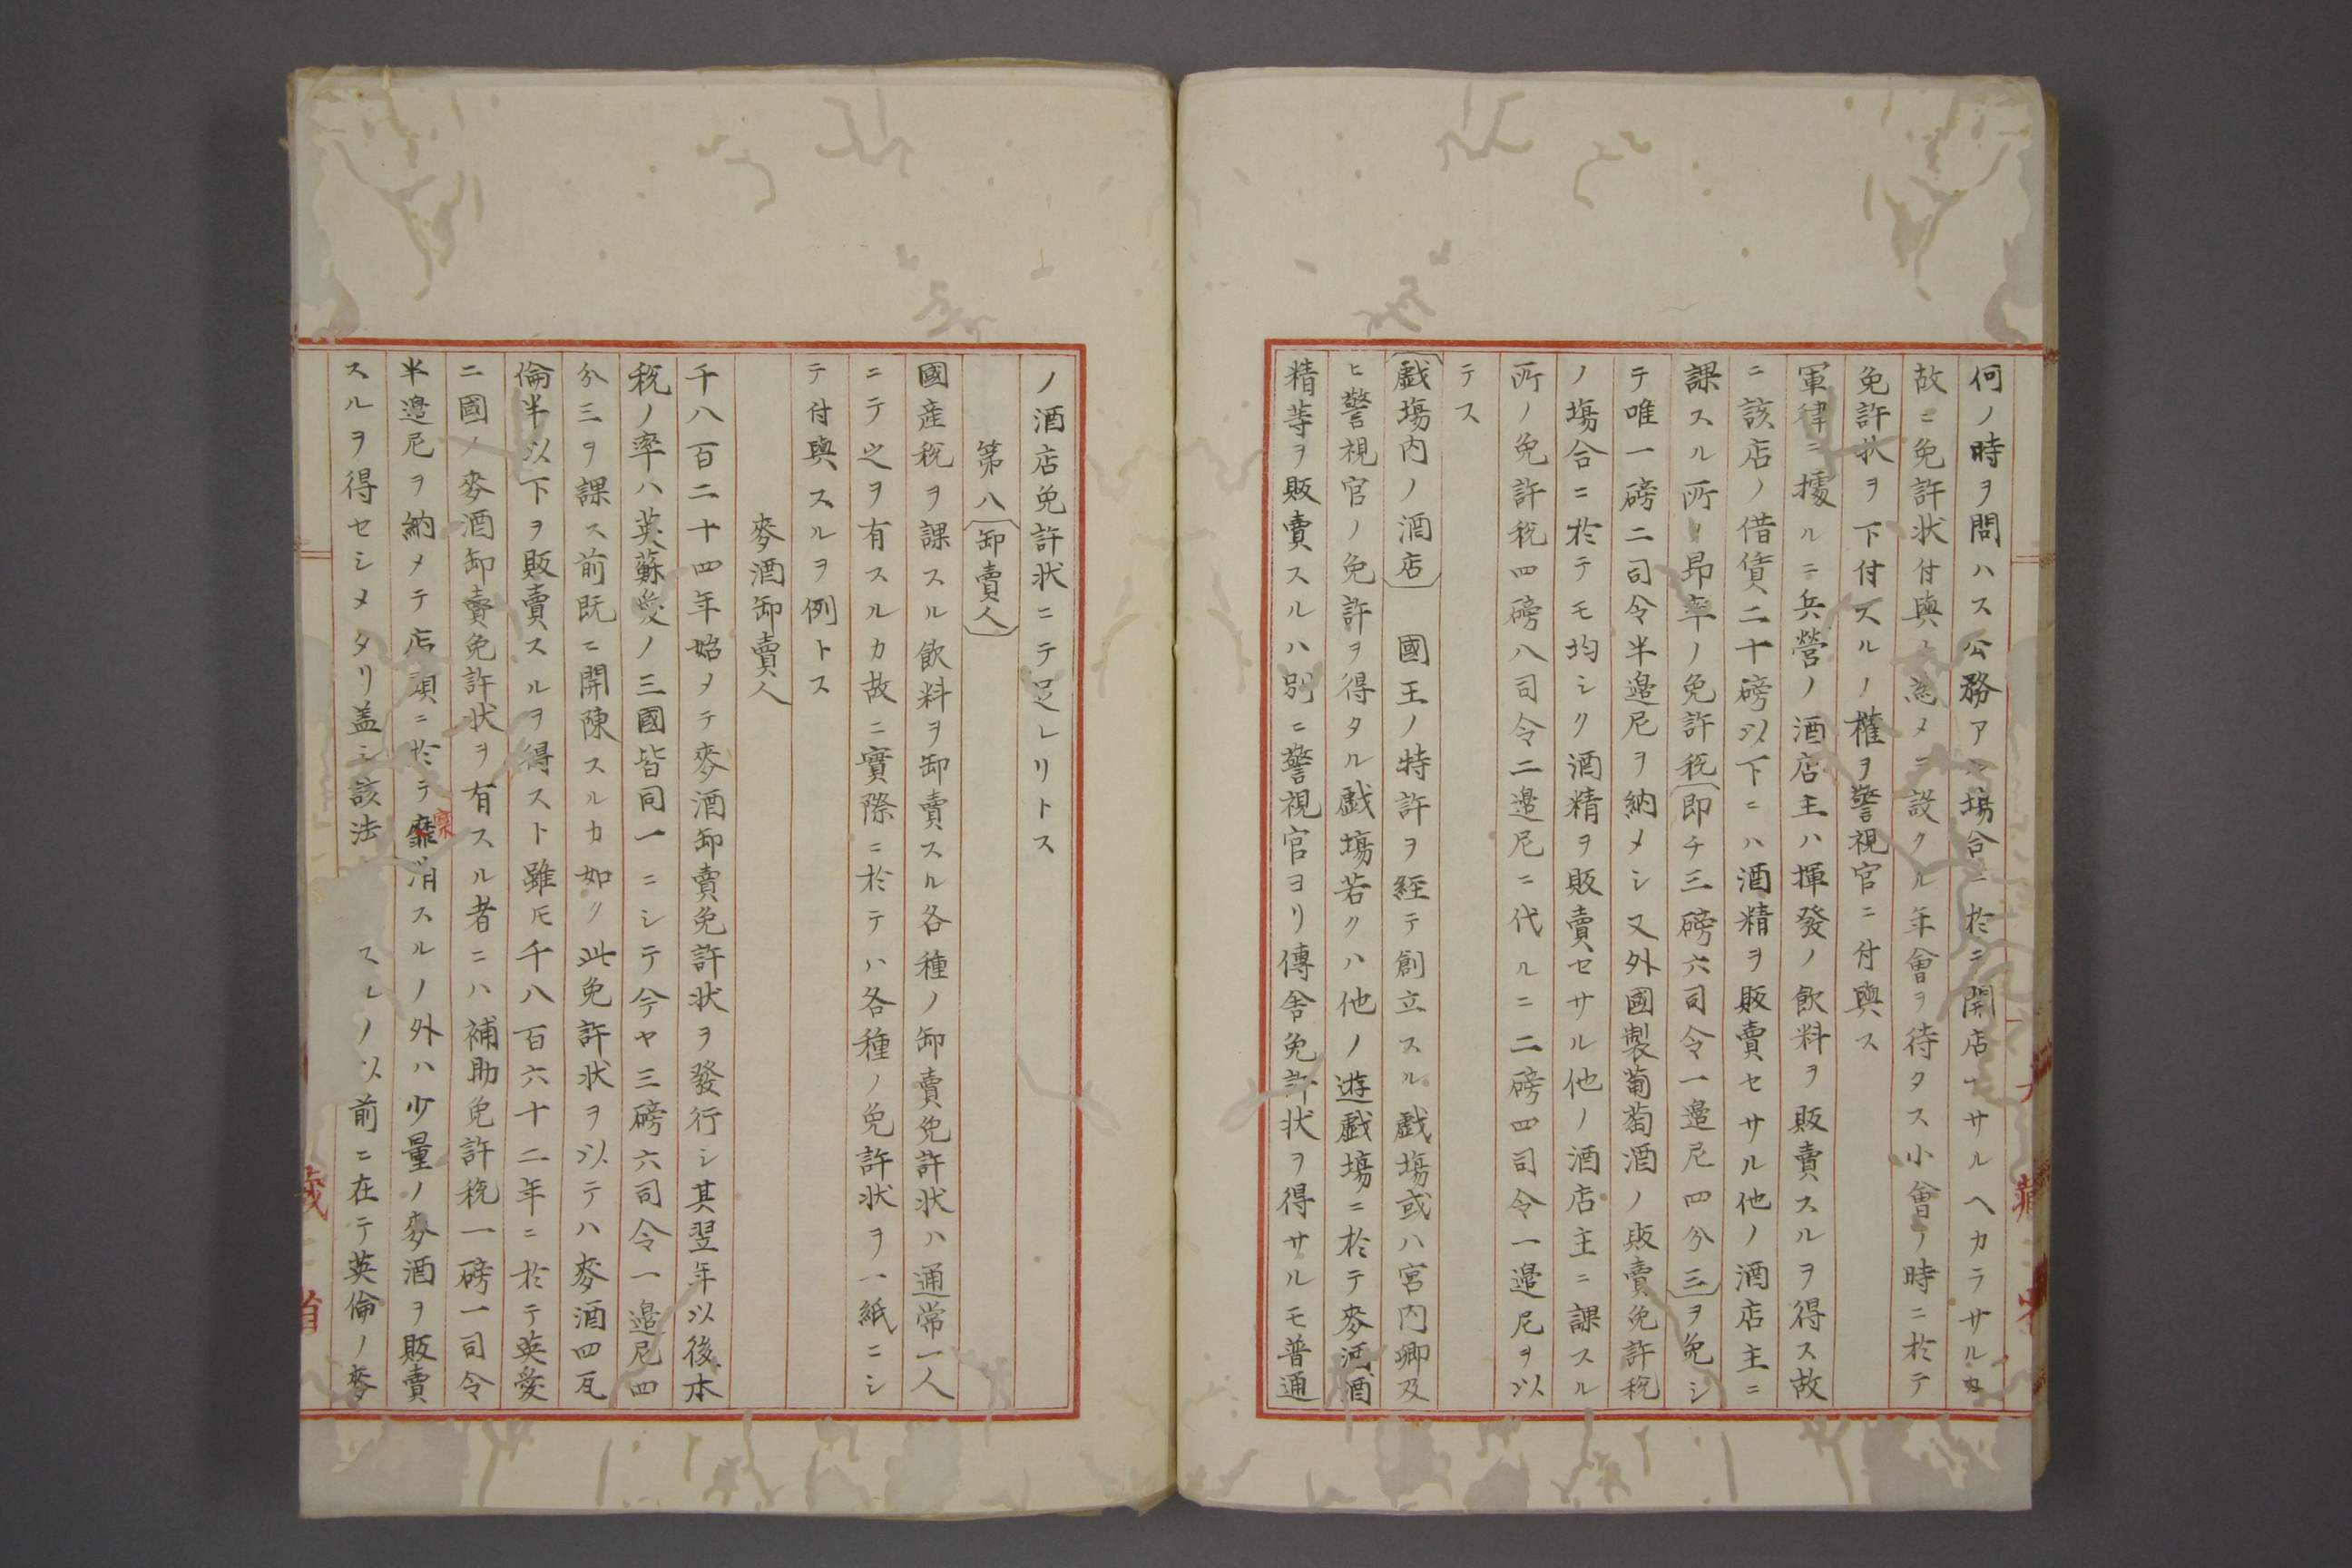 何ノ時ヲ問ハス公務アル場合ニ於ニ開店セサルヘカラサルカ
故ニ免許状付與ノ為メニ設クル年會ヲ待タス小會ノ時ニ於テ
免許状ヲ下付スルノ權ヲ警視官ニ付與ス
軍律ニ據ルニ兵營ノ酒店主ハ揮發ノ飲料ヲ販賣スルヲ得ス故
ニ該店ノ借賃二十磅以下ニハ酒精ヲ販賣セサル他ノ酒店主ニ
課スル所ノ昻率ノ免許税(即チ三磅六司令一邉尼四分三)ヲ免シ
テ唯一磅二司令半邉尼ヲ納メシ又外國製葡萄酒ノ販賣免許税
ノ塲合ニ於テモ均シク酒精ヲ販賣セサル他ノ酒店主ニ課スル
所ノ免許税四磅八司令二邉尼ニ代ルニ二磅四司令一邉尼ヲ以
テス
(戯塲内ノ酒店) 國王ノ特許ヲ経テ創立スル戯塲或ハ宮内卿及
ヒ警視官ノ免許ヲ得タル戯塲若クハ他ノ遊戯塲ニ於テ麥酒酒
精等ヲ販賣スルハ別ニ警視官ヨリ傳舎免許状ヲ得サルモ普通
ノ酒店免許状ニテ足レリトス
第八(卸賣人)
國産税ヲ課スル飲料ヲ卸賣スル各種ノ卸賣免許状ハ通常一人
ニテ之ヲ有スルカ故ニ實際ニ於テハ各種ノ免許状ヲ一紙ニシ
テ付與スルヲ例トス
麥酒卸賣人
千八百二十四年始メテ麥酒卸賣免許状ヲ發行シ其翌年以後本
税ノ率ハ英蘇愛ノ三國皆同一ニシテ今ヤ三磅六司令一邉尼四
分三ヲ課ス前既ニ開陳スルカ如ク此免許状ヲ以テハ麥酒四瓦
倫半以下ヲ販賣スルヲ得スト雖𪜈千八百六十二年ニ於テ英愛
二國ノ麥酒卸賣免許状ヲ有スル者ニハ補助免許税一磅一司令
半邉尼ヲ納メテ店頭ニ於テ靡消スルノ外ハ少量ノ麥酒ヲ販賣
スルヲ得セシメタリ盖シ該法 スルノ以前ニ在テ英倫ノ麥